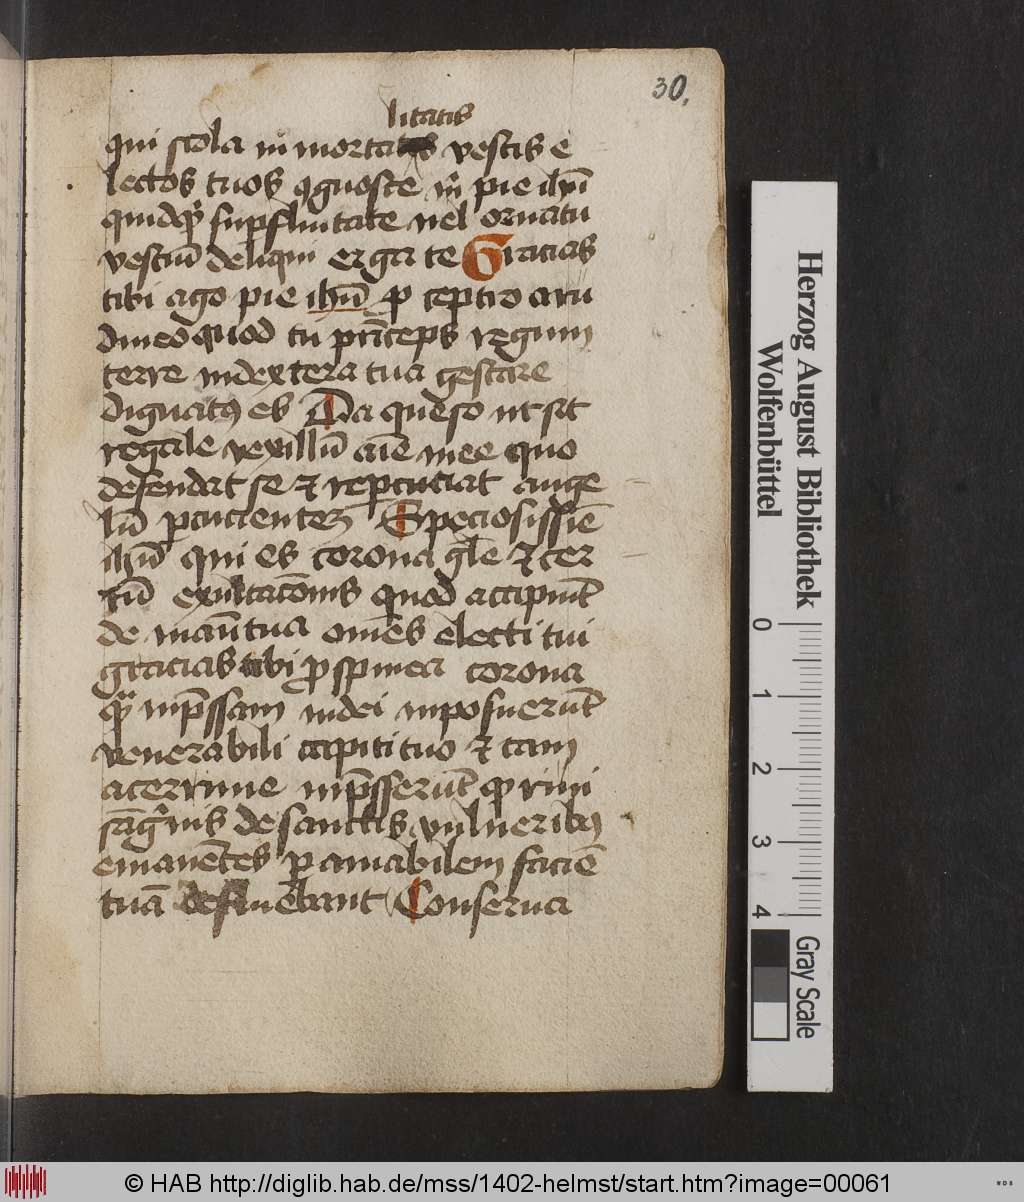 30.
litatis
qui stola in mortatis vestis e
lectos tuos ꝯgnosce m̄ pie ihū
quidqͥd supfluitate vel ornatu
vestiū deliqui erga te Gracias
tibi ago pie ihū ꝓ ceptro aru
dineo quod tu prīceps regum
terre in dextera tua gestare
dignatꝰ es Da queso ut sit
regale vexillū aīe mee quo
defendat se et repcuciat ange
lū pcucientem Speciosissīe
ihū qui es corona glīe et cer
tū exultacōnis quod accipiūt
de manu tua om̄es electi tui
gracias tibi ꝓ spinea corona
quā inp̄ssam iudei inposuerūt
venerabili capiti tuo et tam
acerrime inp̄sserūt ꝙ rivi
sāgͥnis de sanctis vulneribꝰ
emanētes p amabilem faciē
tuā defluebant Conserva
Herzog August Bibliothek
Wolfenbüttel
0 1 2 3 4
Gray Scale
© HAB http://diglib.hab.de/mss/1402-helmst/start.htm?image=00061